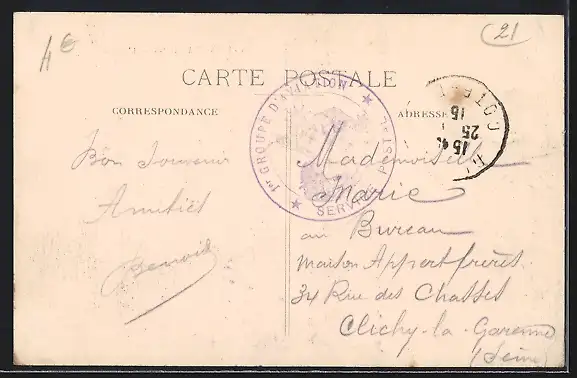 4€
21
CARTE POSTALE
CORRESPONDANCE
ADRESSE
1er GROUPE D'AVIATION
SERVICE POSTAL
CÔTE-D'OR
15
25
15
Bon Souvenir
Amitiés
Benoit
Mademoiselle
Marie
au Bureau
Maison Appert frères
34 Rue des Chasses
Clichy-la-Garenne
(Seine)